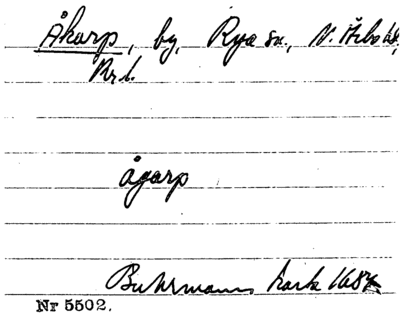 Åkarp, by, Rya sn., N. Åsbo hd,
Kr. l.
ågarp
Buhrmanns karta 1684.
Nr 5502.